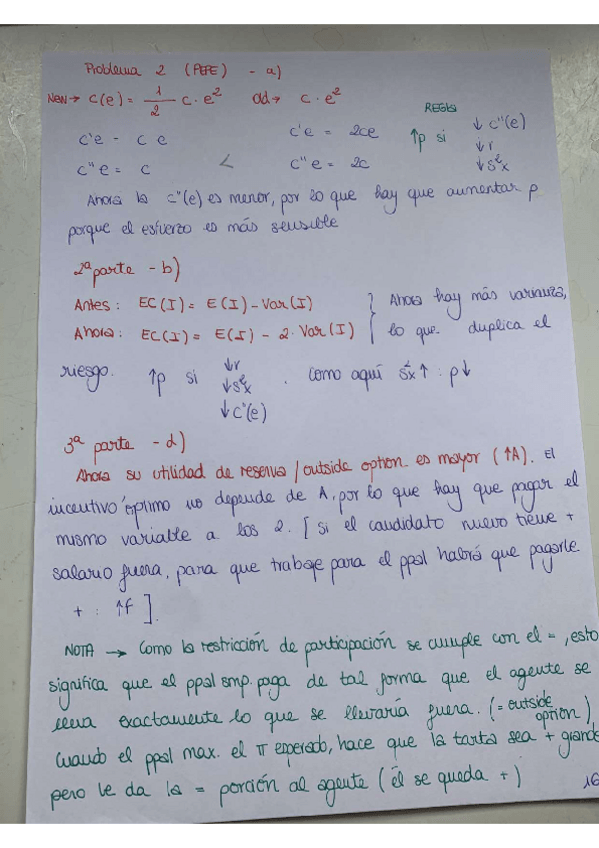 Problema 2 (PEPE) - a)
New → c(e) = 1/2 c·e² Old → c·e²
REGLA
c'e = c e c'e = 2ce ↑p si ↓ c''(e)
↓ r
c''e = c < c''e = 2c ↓ s²x
Ahora la c''(e) es menor, por lo que hay que aumentar p
porque el esfuerzo es más sensible
2ª parte - b)
Antes: EC(I) = E(I) - Var(I) } Ahora hay más varianza,
Ahora: EC(I) = E(I) - 2·Var(I) lo que duplica el
riesgo. ↑p si ↓r
↓s²x . Como aquí s²x ↑ : p↓
↓c''(e)
3ª parte - d)
Ahora su utilidad de reserva / outside option es mayor (↑A). El
incentivo óptimo no depende de A, por lo que hay que pagar el
mismo variable a los 2. [ Si el candidato nuevo tiene +
salario fuera, para que trabaje para el ppal habrá que pagarle
+ : ↑f ].
NOTA → Como la restricción de participación se cumple con el = , esto
significa que el ppal smp. paga de tal forma que el agente se
lleva exactamente lo que se llevaría fuera. (= outside
option),
Cuando el ppal max. el π esperado, hace que la tarta sea + grande
pero le da la = porción al agente (él se queda +)
16